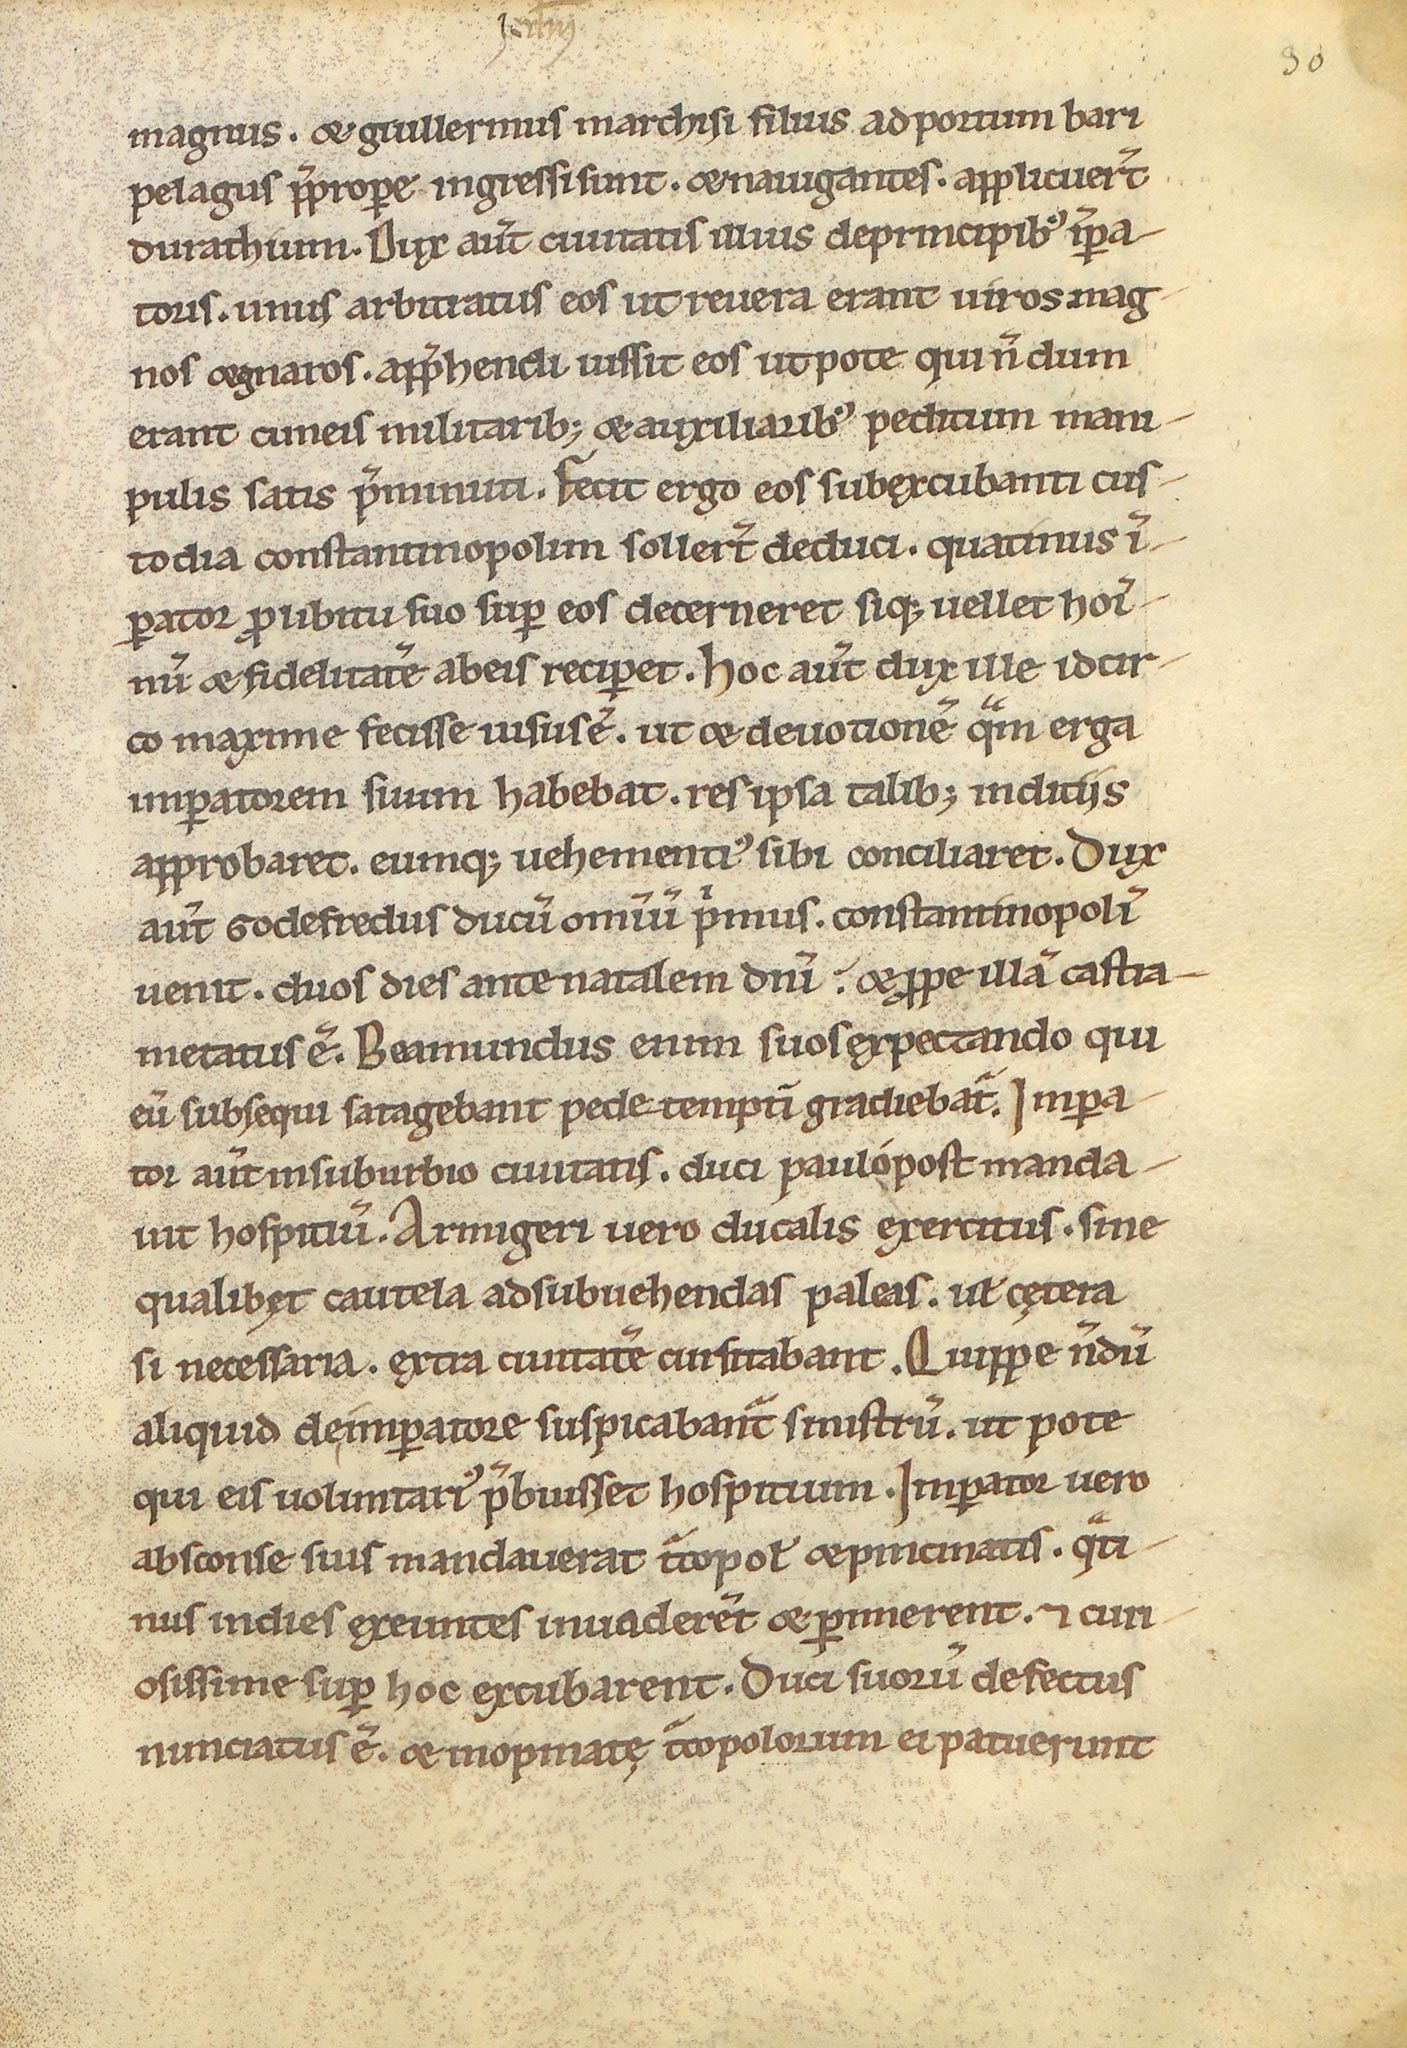 30
magnus. & guillermus marchisi filius ad portum bari
pelagus p̄propere ingressi sunt. & nauigantes. applicuer̄t
durachium. Dux aūt ciuitatis illius de principibꝰ īꝑa-
toris. unus arbitratus eos ut reuera erant uiros mag-
nos & gnaros. app̄hendi iussit eos utpote qui n̄dum
erant cuneis militarib; & auxiliaribꝰ peditum mani-
pulis satis p̄muniti. Fecit ergo eos sub excubanti cus-
todia constantinopolim soller̄t deduci. quatinus ī-
ꝑator ꝓ libitu suo suꝑ eos decerneret siq; uellet hoī-
nū & fidelitatē ab eis reciꝑet. Hoc aūt dux ille idcir-
co maxime fecisse uisus ē. ut & deuotionē q̄m erga
imꝑatorem suum habebat. res ipsa talib; inditiis
approbaret. eumq; uehementiꝰ sibi conciliaret. Dux
aūt Godefredus ducū omīū pⁱmus. constantinopolī
uenit. duos dies ante natalem dn̄i. & ꝓpe illā castra-
metatus ē. Boamundus enim suos expectando qui
eū subsequi satagebant pedetemptī gradiebat̄. Imꝑa-
tor aūt in suburbio ciuitatis. duci paulo post manda-
uit hospitiū. Armigeri uero ducalis exercitus. sine
qualibet cautela ad subuehendas paleas. uł cętera
si necessaria. extra ciuitatē cursitabant. Quippe n̄dū
aliquid de imꝑatore suspicaban̄t sinistrū. utpote
qui eis uoluntariꝰ p̄buisset hospitium. Imꝑator uero
absconse suis mandauerat t̄copoł & pincinatis. q̄ti-
nus in dies exeuntes inuader̄et & ꝑimerent. ⁊ curi-
osissime suꝑ hoc excubarent. Duci suorū defectus
nunciatus ē. & inopinatę t̄copolorum ei patuerunt